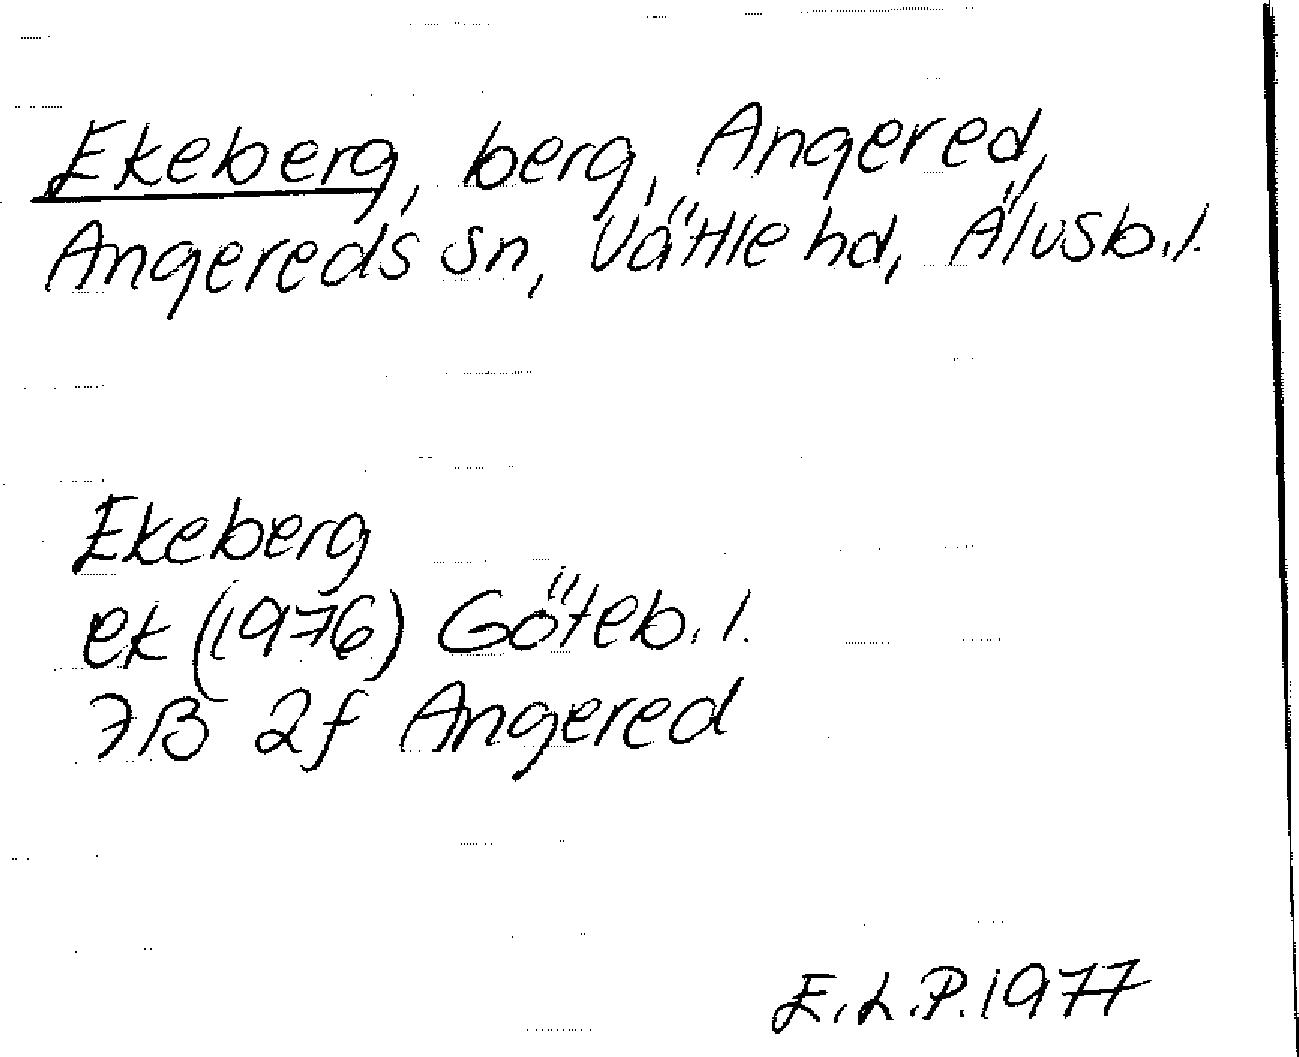 Ekeberg, berg, Angered,
Angereds sn, Vättle hd, Älvsb.l.
Ekeberg
ek (1976) Göteb.l.
7B 2f Angered
E.L.P. 1977